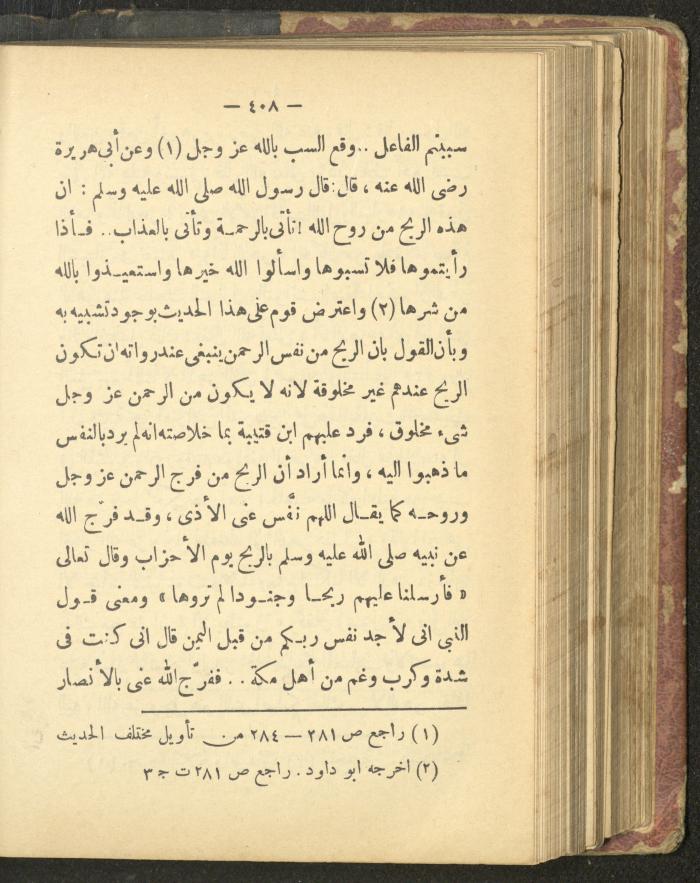 — ٤٠٨ —
سببتم الفاعل .. وقع السب بالله عز وجل (١) وعن أبى هريرة
رضى الله عنه ، قال : قال رسول الله صلى الله عليه وسلم : ان
هذه الريح من روح الله ! تأتى بالرحمة وتأتى بالعذاب .. فأذا
رأيتموها فلا تسبوها واسألوا الله خيرها واستعيذوا بالله
من شرها (٢) واعترض قوم على هذا الحديث بوجود تشبيه به
وبأن القول بان الريح من نفس الرحمن ينبغى عند رواته ان تكون
الريح عندهم غير مخلوقة لانه لا يكون من الرحمن عز وجل
شىء مخلوق ، فرد عليهم ابن قتيبة بما خلاصته انه لم يرد بالنفس
ما ذهبوا اليه ، وانما أراد أن الريح من فرج الرحمن عز وجل
وروحه كما يقال اللهم نفَّس عنى الأذى ، وقد فرّج الله
عن نبيه صلى الله عليه وسلم بالريح يوم الأحزاب وقال تعالى
« فأرسلنا عليهم ريحا وجنودا لم تروها » ومعنى قول
النبى انى لأجد نفس ربكم من قبل اليمن قال انى كنت فى
شدة وكرب وغم من أهل مكة .. ففرّج الله عنى بالأنصار
(١) راجع ص ٢٨١ — ٢٨٤ من تأويل مختلف الحديث
(٢) اخرجه ابو داود . راجع ص ٢٨١ ت ج ٣